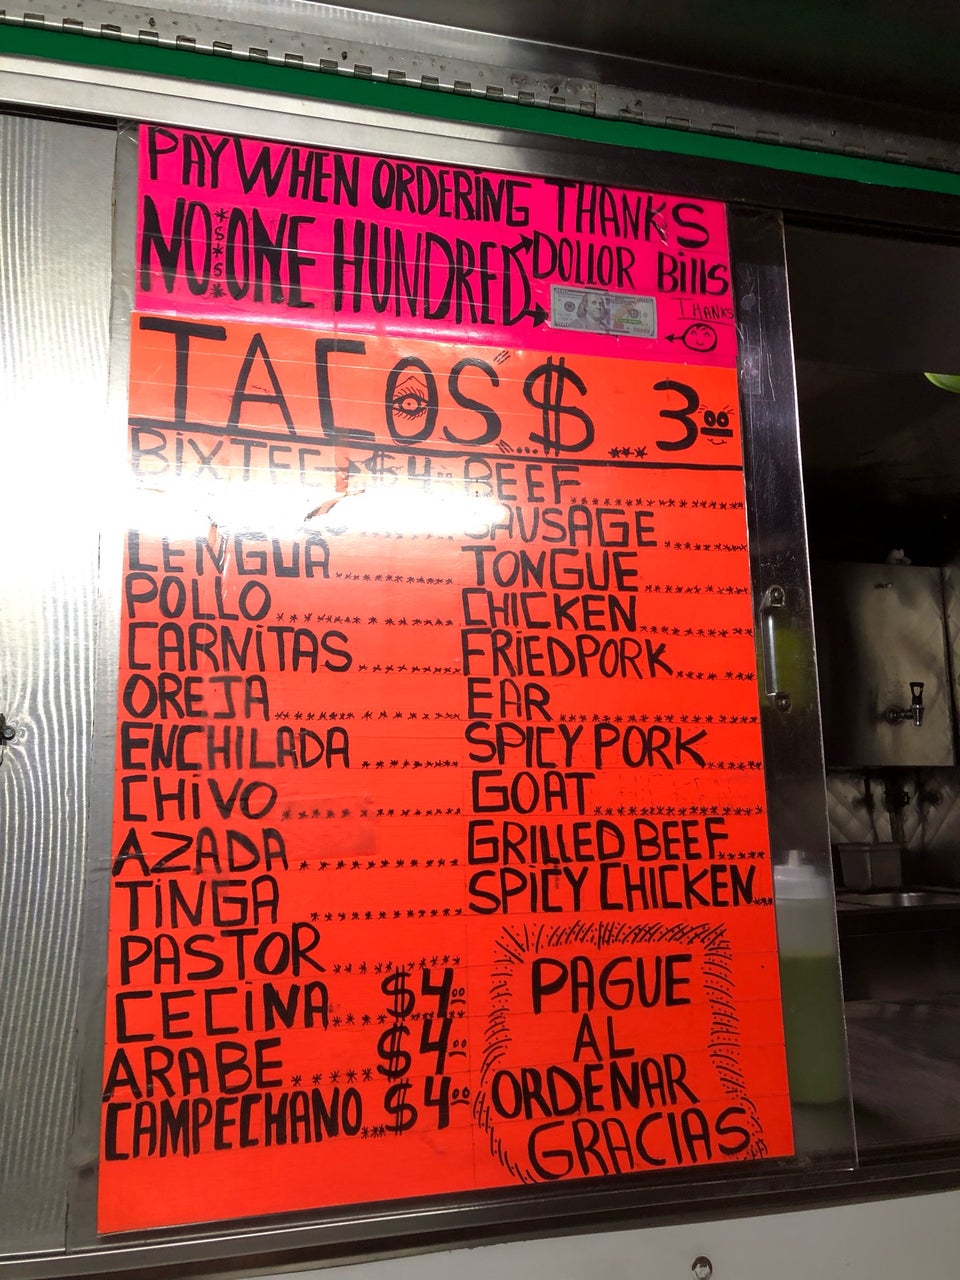 PAY WHEN ORDERING THANKS
NO $*$*$* ONE HUNDRED DOLLOR Bills
THANKS
TACOS $ 3.00
BiXTEC $4.00 BEEF
SAUSAGE
LENGUA TONGUE
POLLO CHICKEN
CARNiTAS FRiED PORK
OREJA EAR
ENCHiLADA SPICY PORK
CHiVO GOAT
AZADA GRILLED BEEF
TiNGA SPiCY CHICKEN
PASTOR
CECiNA $4.00
ARABE $4.00
CAMPECHANO $4.00
PAGUE
AL
ORDENAR
GRACIAS